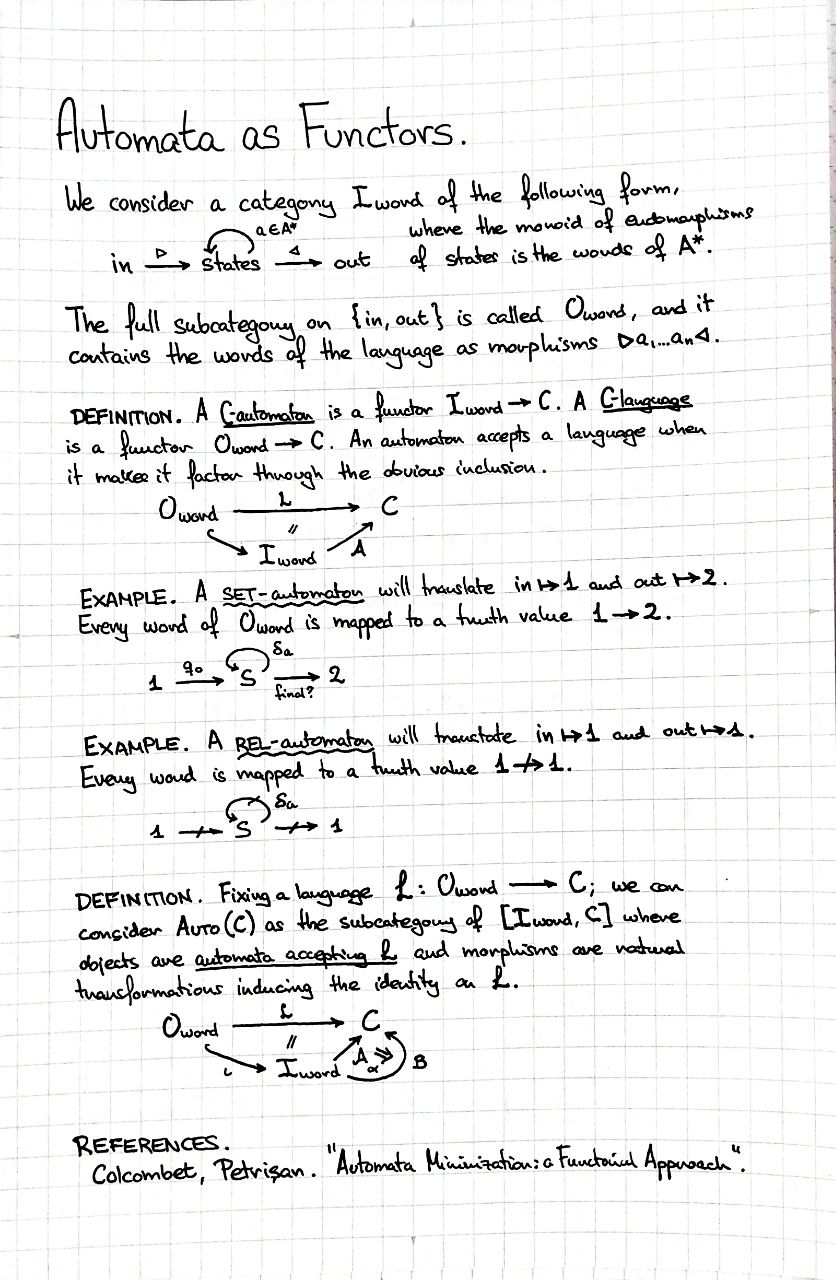 Automata as Functors.
We consider a category Iword of the following form,
where the monoid of endomorphisms
of states is the words of A*.
a∈A*
in ▷→ states ◁→ out
The full subcategory on {in, out} is called Oword, and it
contains the words of the language as morphisms ▷a₁...aₙ◁.
DEFINITION. A C-automaton is a functor Iword → C. A C-language
is a functor Oword → C. An automaton accepts a language when
it makes it factor through the obvious inclusion.
Oword L→ C
=
Iword A
EXAMPLE. A SET-automaton will translate in ↦ 1 and out ↦ 2.
Every word of Oword is mapped to a truth value 1 → 2.
δa
1 q₀→ S → 2
final?
EXAMPLE. A REL-automaton will translate in ↦ 1 and out ↦ 1.
Every word is mapped to a truth value 1 ⇸ 1.
δa
1 ⇸ S ⇸ 1
DEFINITION. Fixing a language L: Oword → C; we can
consider AUTO(C) as the subcategory of [Iword, C] where
objects are automata accepting L and morphisms are natural
transformations inducing the identity on L.
Oword L→ C
=
ι Iword A ⇒ α B
REFERENCES.
Colcombet, Petrişan. "Automata Minimization: a Functorial Approach".